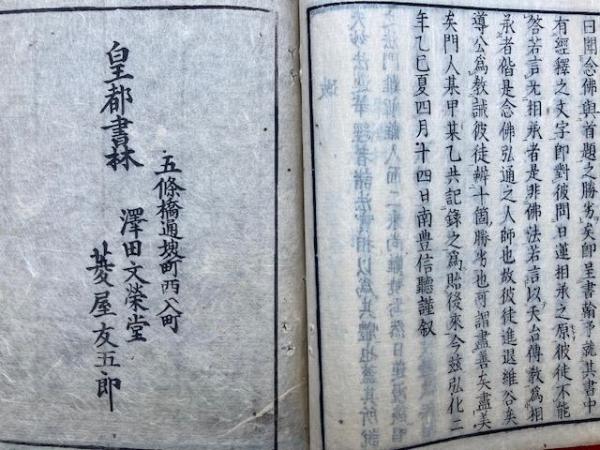 曰聞念佛與首題之勝劣矣即呈書翰予就其書中
有經釋之文字即對彼問日蓮相承之原彼徒不能
答若言无相承者是非佛法若言以天台傳教為相
承者偕是念佛弘通之人師也故彼徒進退維谷矣
導公為教誡彼徒辨十箇勝劣也可謂盡善矣盡美
矣門人某甲某乙共記錄之為貽後來今茲弘化二
年乙巳夏四月十四日南豊信聽謹叙
五條橋通堺町西入町
皇都書林
澤田文榮堂
菱屋友五郎